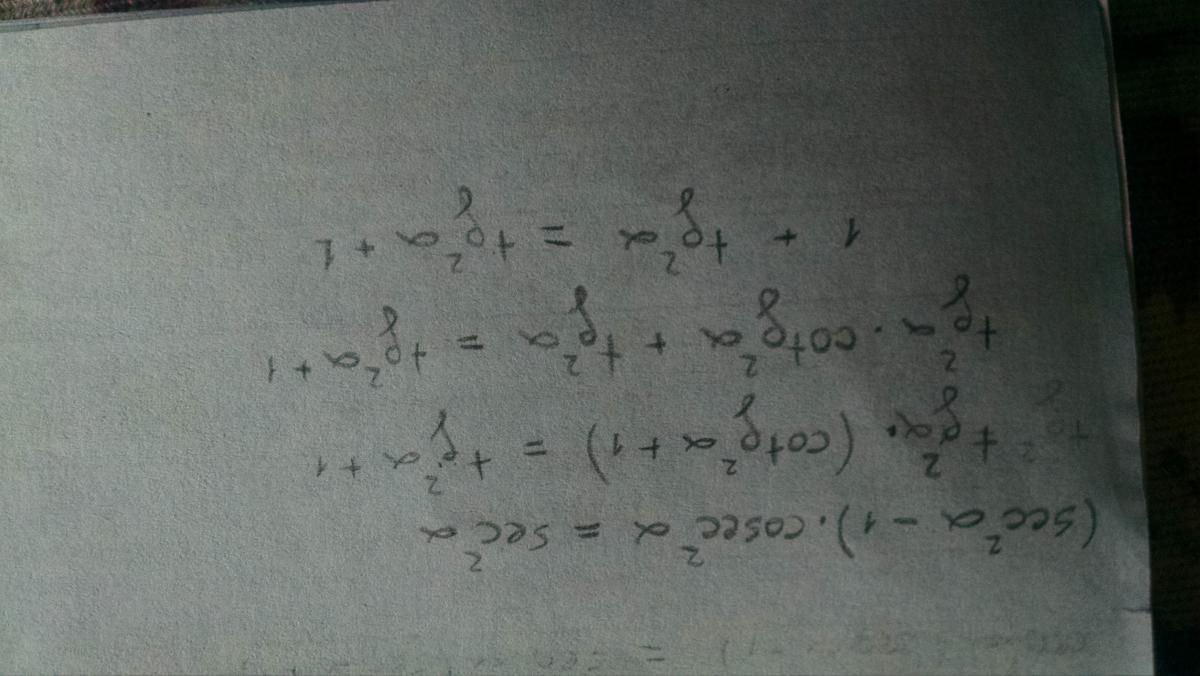 (sec² α - 1). cosec² α = sec² α
tg² α. (cotg² α + 1) = tg² α + 1
tg² α . cotg² α + tg² α = tg² α + 1
1 + tg² α = tg² α + 1